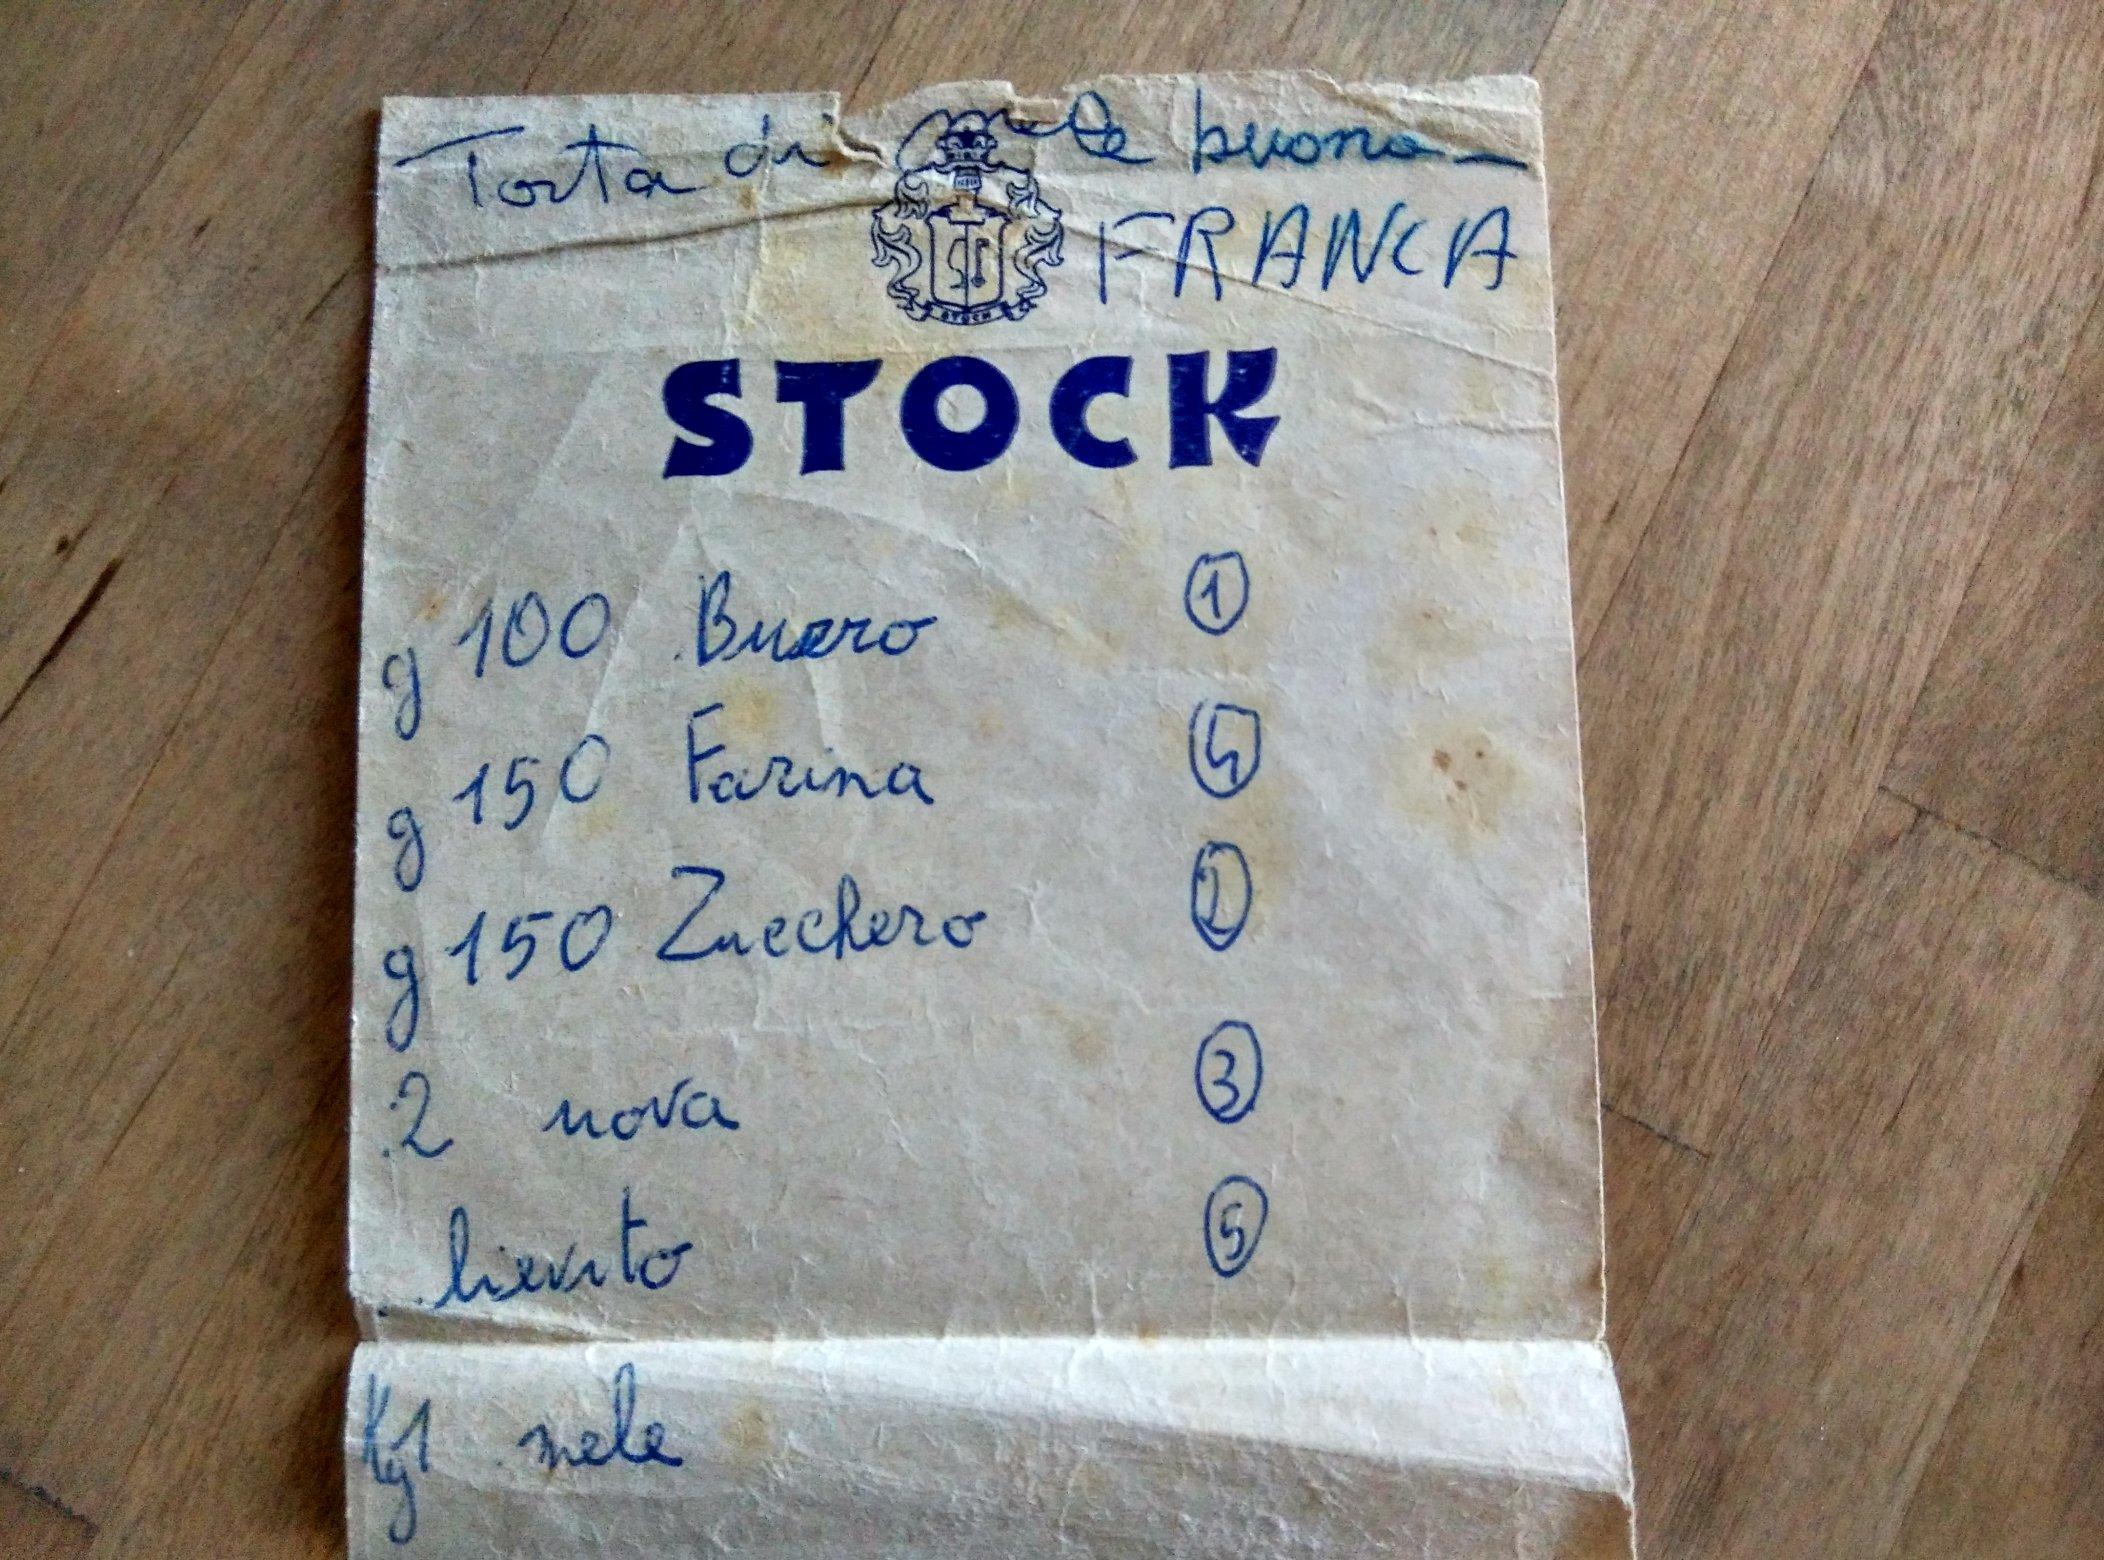 Torta di mele buona -
FRANCA
STOCK
STOCK
g 100 Burro 1
g 150 Farina 4
g 150 Zucchero 2
2 uova 3
lievito 5
Kg 1 mele